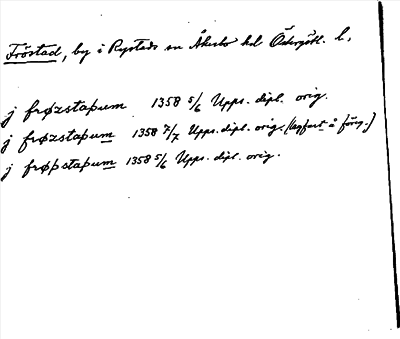 Fröstad, by i Rystads sn Åkerbo hd Östergötl. l.
j frøzstaþum 1358 5/6 Upps. dipl. orig.
j frøzstaþum 1358 7/7 Upps. dipl. orig. (lagfart å föreg.)
j frøþstaþum 1358 5/6 Upps. dipl. orig.